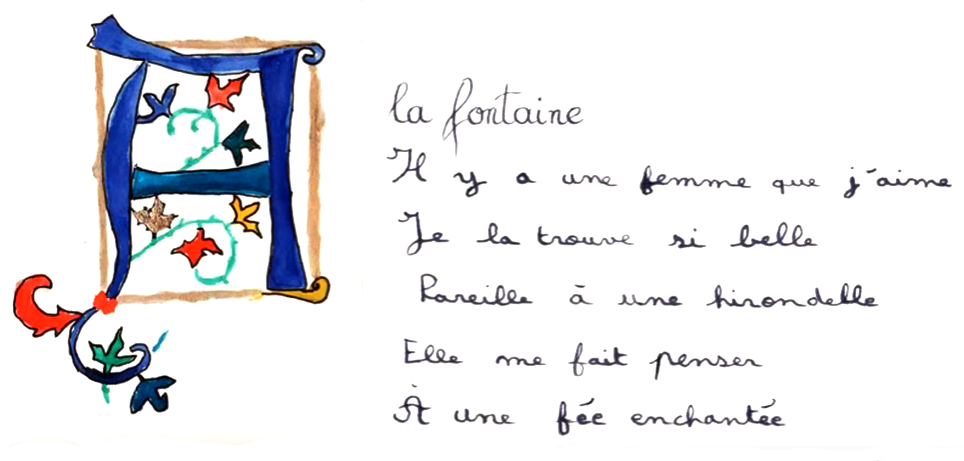 A la fontaine
Il y a une femme que j'aime
Je la trouve si belle
Pareille à une hirondelle
Elle me fait penser
À une fée enchantée